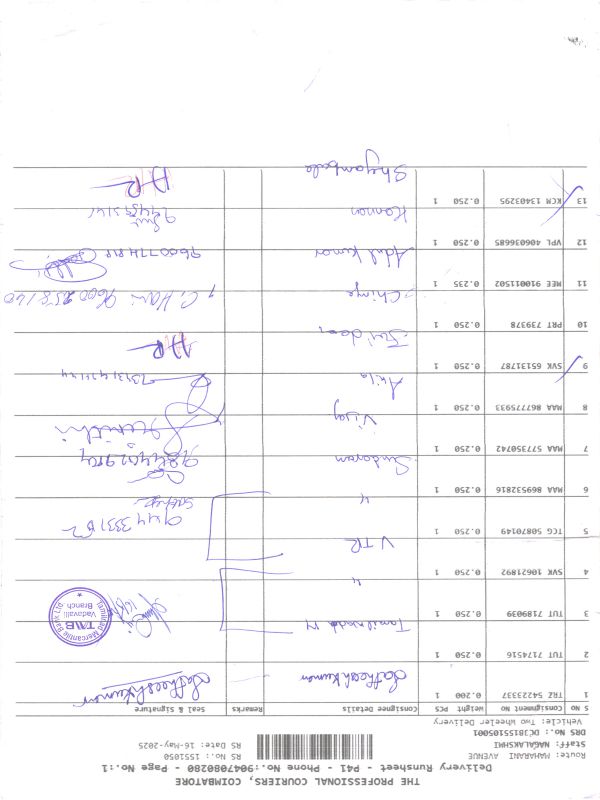 THE PROFESSIONAL COURIERS, COIMBATORE
Delivery Runsheet - P41 - Phone No.:9047080280 - Page No.:1
Route: MAHARANI AVENUE RS No.: 1551050
Staff: NAGALAKSHMI RS Date: 16-May-2025
DRS No.: DC3815S105001
Vehicle: Two Wheeler Delivery
S NO Consignment No Weight PCS Consignee Details Remarks Seal & Signature
1 TRZ 54223337 0.200 1 Satheeshkumar Satheeshkumar
2 TUT 7174516 0.250 1 Tamilnadu M
3 TUT 7189039 0.250 1 " Tamilnad Mercantile Bank Ltd. TMB Vadavalli Branch
4 SVK 10621892 0.250 1 VTR
5 TCG 50870149 0.250 1 "
6 MAA 869532816 0.250 1 Sundaram
7 MAA 577350742 0.250 1 Vijay
8 MAA 867775933 0.250 1 Akila
9 SVK 65131787 0.250 1 HR
10 PRT 739378 0.250 1 C. Hari 9600258160
11 MEE 910011502 0.235 1 Adul kumar 9600774818
12 VPL 406036685 0.250 1 Kannan
13 KCM 13403295 0.250 1 Shyambala HR